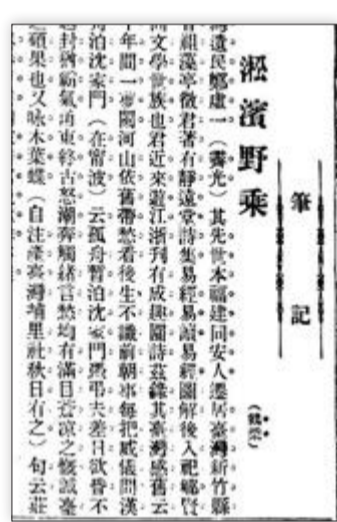 筆記
淞濱野乘
遺民鄭虛一（霽光）其先世本福建同安人遷居臺灣新竹縣
祖藻亭徵君著有靜遠堂詩集易經易讀易經圖解後入祀鄉賢
文學世族也君近來遊江浙刊有成趣園詩茲錄其臺灣感舊云
年間一夢閱河山依舊帶愁看後生不識前朝事每把威儀問漢
泊沈家門（在甯波）云孤舟暫泊沈家門憑弔夫差日欲昏不
封猶霸氣東終古怒潮奔觸緒言愁均有滿目蒼涼之慨誠臺
碩果也又咏木葉蝶（自注產臺灣埔里社秋日有之）句云莊